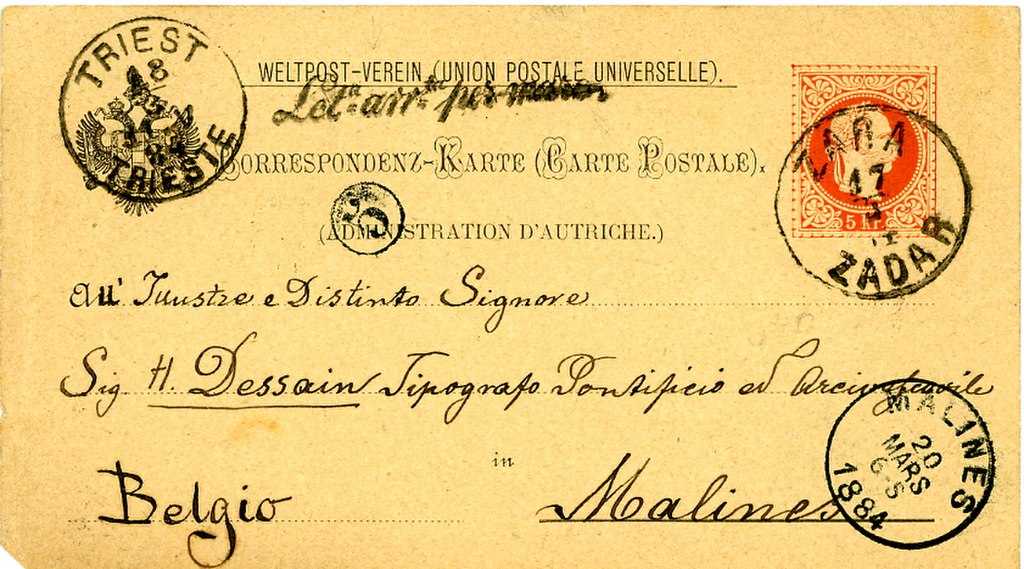 TRIEST
18
TRIESTE
WELTPOST-VEREIN (UNION POSTALE UNIVERSELLE).
Lett. arr. per mare
CORRESPONDENZ-KARTE (CARTE POSTALE).
5
(ADMINISTRATION D'AUTRICHE.)
5 Kr.
ZARA
17
ZADAR
All' Signore
e Distinto
Sig H. Dessain Tipografo Pontificio ed
in
Belgio Malines
MALINES
20
MARS
6-S
1884